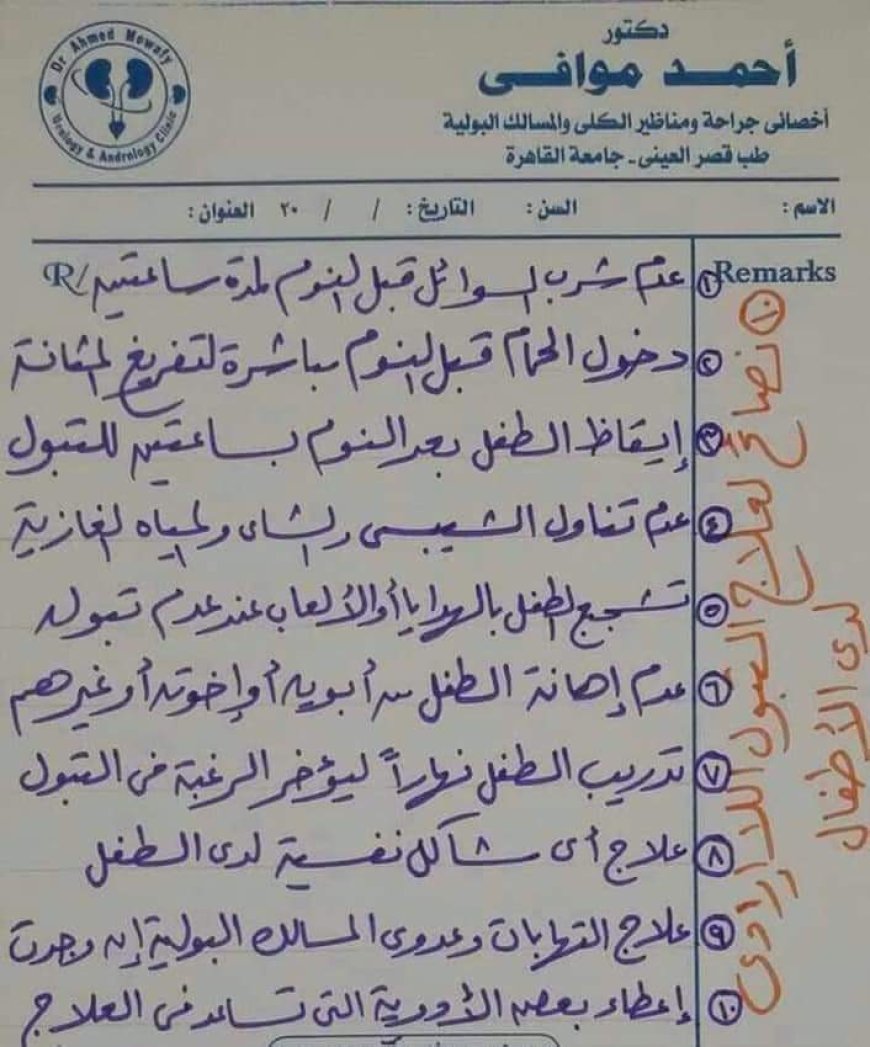 Dr Ahmed Mowafy
Urology & Andrology Clinic
دكتور
أحمد موافى
أخصائى جراحة ومناظير الكلى والمسالك البولية
طب قصر العينى - جامعة القاهرة
الاسم : السن : التاريخ : / / ٢٠ العنوان :
R/
Remarks
١٠ نصائح لعلاج التبول اللاإرادى
لدى الأطفال
١ عدم شرب السوائل قبل النوم لمدة ساعتين
٢ دخول الحمام قبل النوم مباشرة لتفريغ المثانة
٣ إيقاظ الطفل بعد النوم بساعتين للتبول
٤ عدم تناول الشيبسى والشاى والمياه الغازية
٥ تشجيع الطفل بالهدايا أو الألعاب عند عدم تبوله
٦ عدم إهانة الطفل من أبويه أو إخوته أو غيرهم
٧ تدريب الطفل نهاراً ليؤخر الرغبة فى التبول
٨ علاج أى مشاكل نفسية لدى الطفل
٩ علاج التهابات وعدوى المسالك البولية إن وجدت
١٠ إعطاء بعض الأدوية التى تساعد فى العلاج